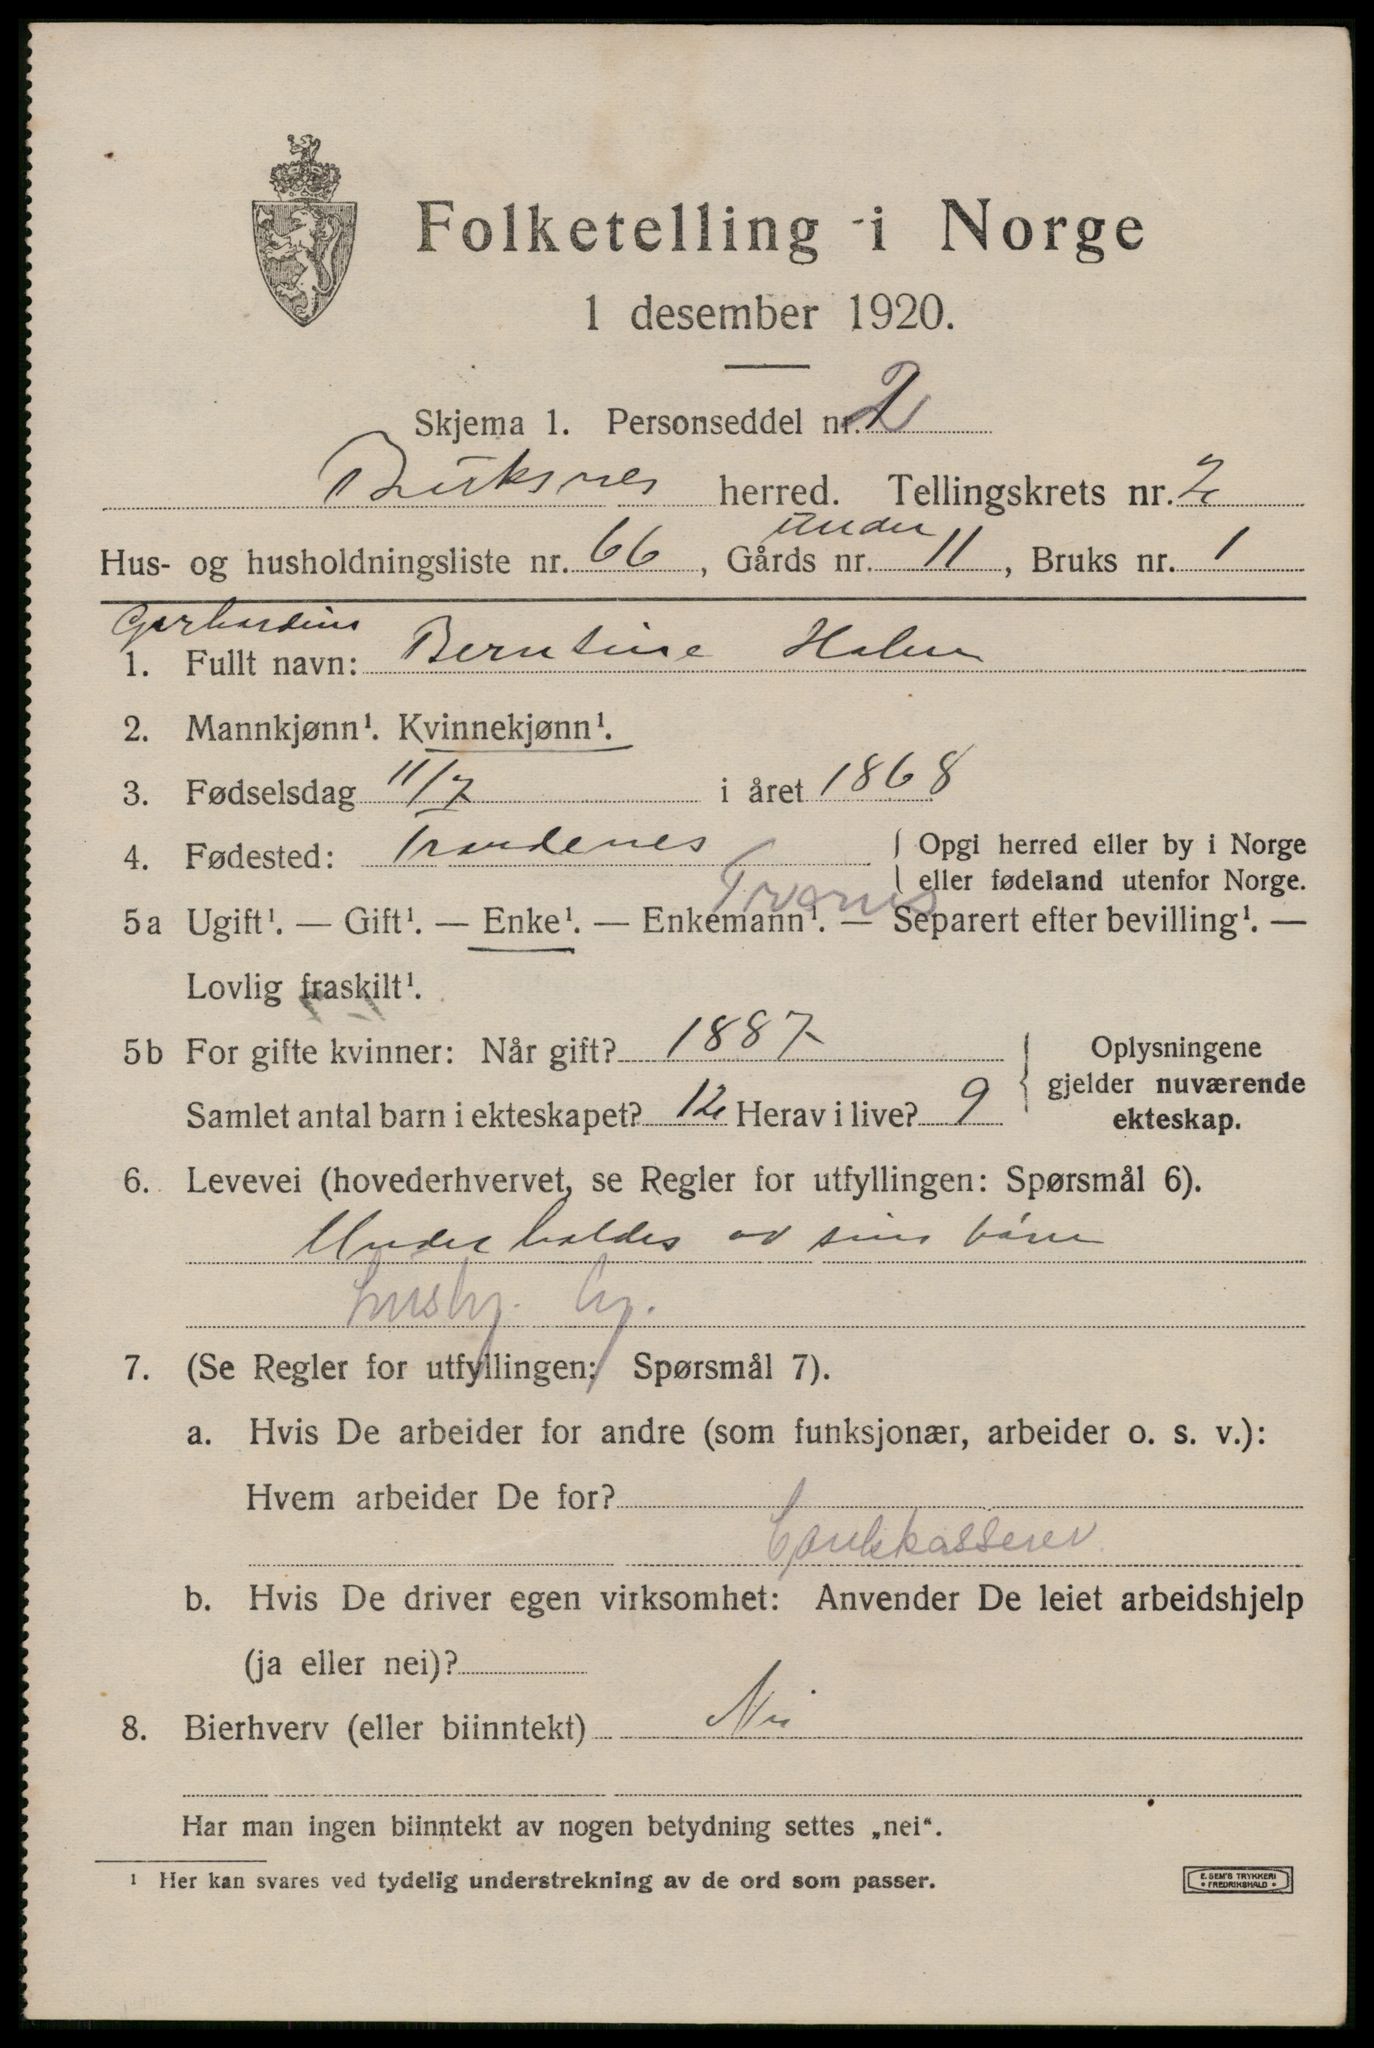 Folketelling i Norge
1 desember 1920.
Skjema 1. Personseddel nr. 2
Buksnes herred. Tellingskrets nr. 2
under
Hus- og husholdningsliste nr. 66, Gårds nr. 11, Bruks nr. 1
Gerhardine
1. Fullt navn: Berntine Holm
2. Mannkjønn¹. Kvinnekjønn¹.
3. Fødselsdag 11/7 i året 1868
4. Fødested: Trondenes { Opgi herred eller by i Norge
{ eller fødeland utenfor Norge.
Troms
5a Ugift¹. — Gift¹. — Enke¹. — Enkemann¹. — Separert efter bevilling¹. —
Lovlig fraskilt¹.
5b For gifte kvinner: Når gift? 1887
Samlet antal barn i ekteskapet? 12 Herav i live? 9
{ Oplysningene
gjelder nuværende
ekteskap.
6. Levevei (hovederhvervet, se Regler for utfyllingen: Spørsmål 6).
Underholdes av sine børn
7. (Se Regler for utfyllingen: Spørsmål 7).
a. Hvis De arbeider for andre (som funksjonær, arbeider o. s. v.):
Hvem arbeider De for?
b. Hvis De driver egen virksomhet: Anvender De leiet arbeidshjelp
(ja eller nei)?
8. Bierhverv (eller biinntekt) Nei
Har man ingen biinntekt av nogen betydning settes „nei“.
¹ Her kan svares ved tydelig understrekning av de ord som passer.
E. SEM'S TRYKKERI
* FREDRIKSHALD *